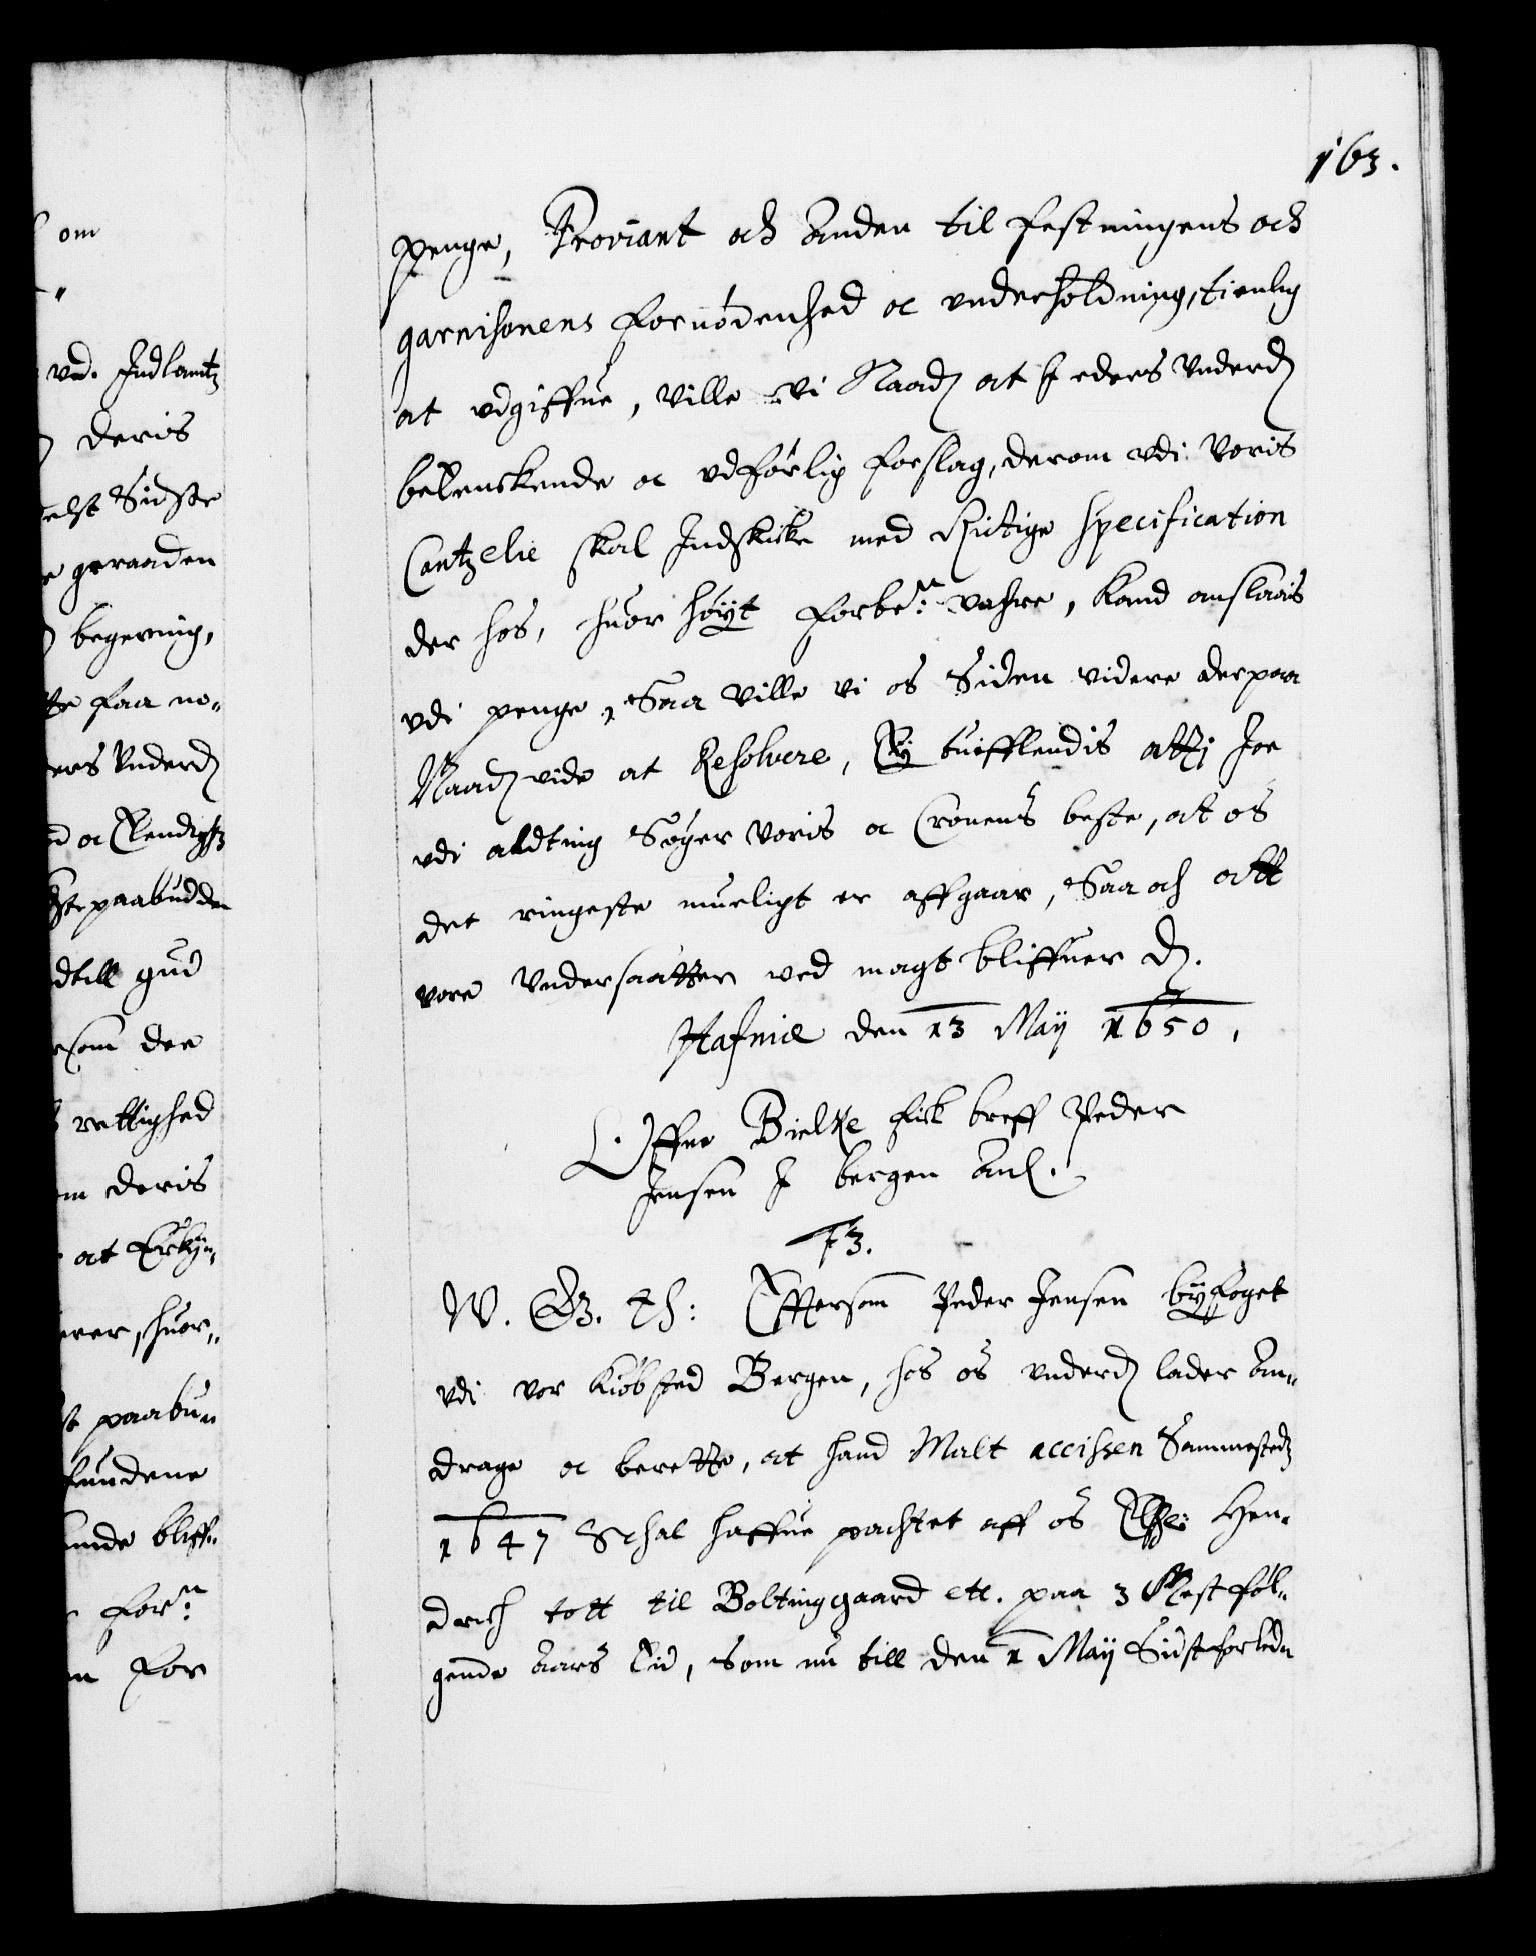 163.
penge, Proviant och Anden til festningens och
garnisonens fornødenhed oc vnderholdning, tienlig
at vdgiffue, ville vi Naad at I eders vnderd
betenckende oc vdførlig forslag, derom vdi Voris
Cantzelie skal Indskicke med Rictige specification
der hos, huor høyt forbem: vahre, kand anslaais
vdi penge, Saa ville vi os Siden videre derpaa
Naad vide at Resolvere, Ey tuifflendis att I Joe
vdi alting Søger Voris oc Cronens beste, at os
det ringeste mueligt er affgaar, Saa och att
vore Vndersaatter ved magt bliffuer D.
Hafniæ den 13 Maij 1650,
Offue Bielke fick breff Peder
Jensen I bergen Anl.
13.
W. G. Th: Effterson Peder Jensen byfoget
vdi vor kiøbsted Bergen, hos os vnderd lader An-
drage oc berette, at hand Malt accissen Sammestedz
1647 Schal haffue pachtet aff os Elskel: Hen-
drich tott til Boltinggaard etc. paa 3 Nest føl-
gende Aars tid, som nu till den 1 Maij Sidstforleden
om
vd. Indlantz
deris
elst Sidste
geraaden
begering,
faa no-
ers Vnderd
paabudden
dtill gud
som der
rettighed
deris
at
erer, huor-
paabu-
fundene
unde bliff-
for:
for